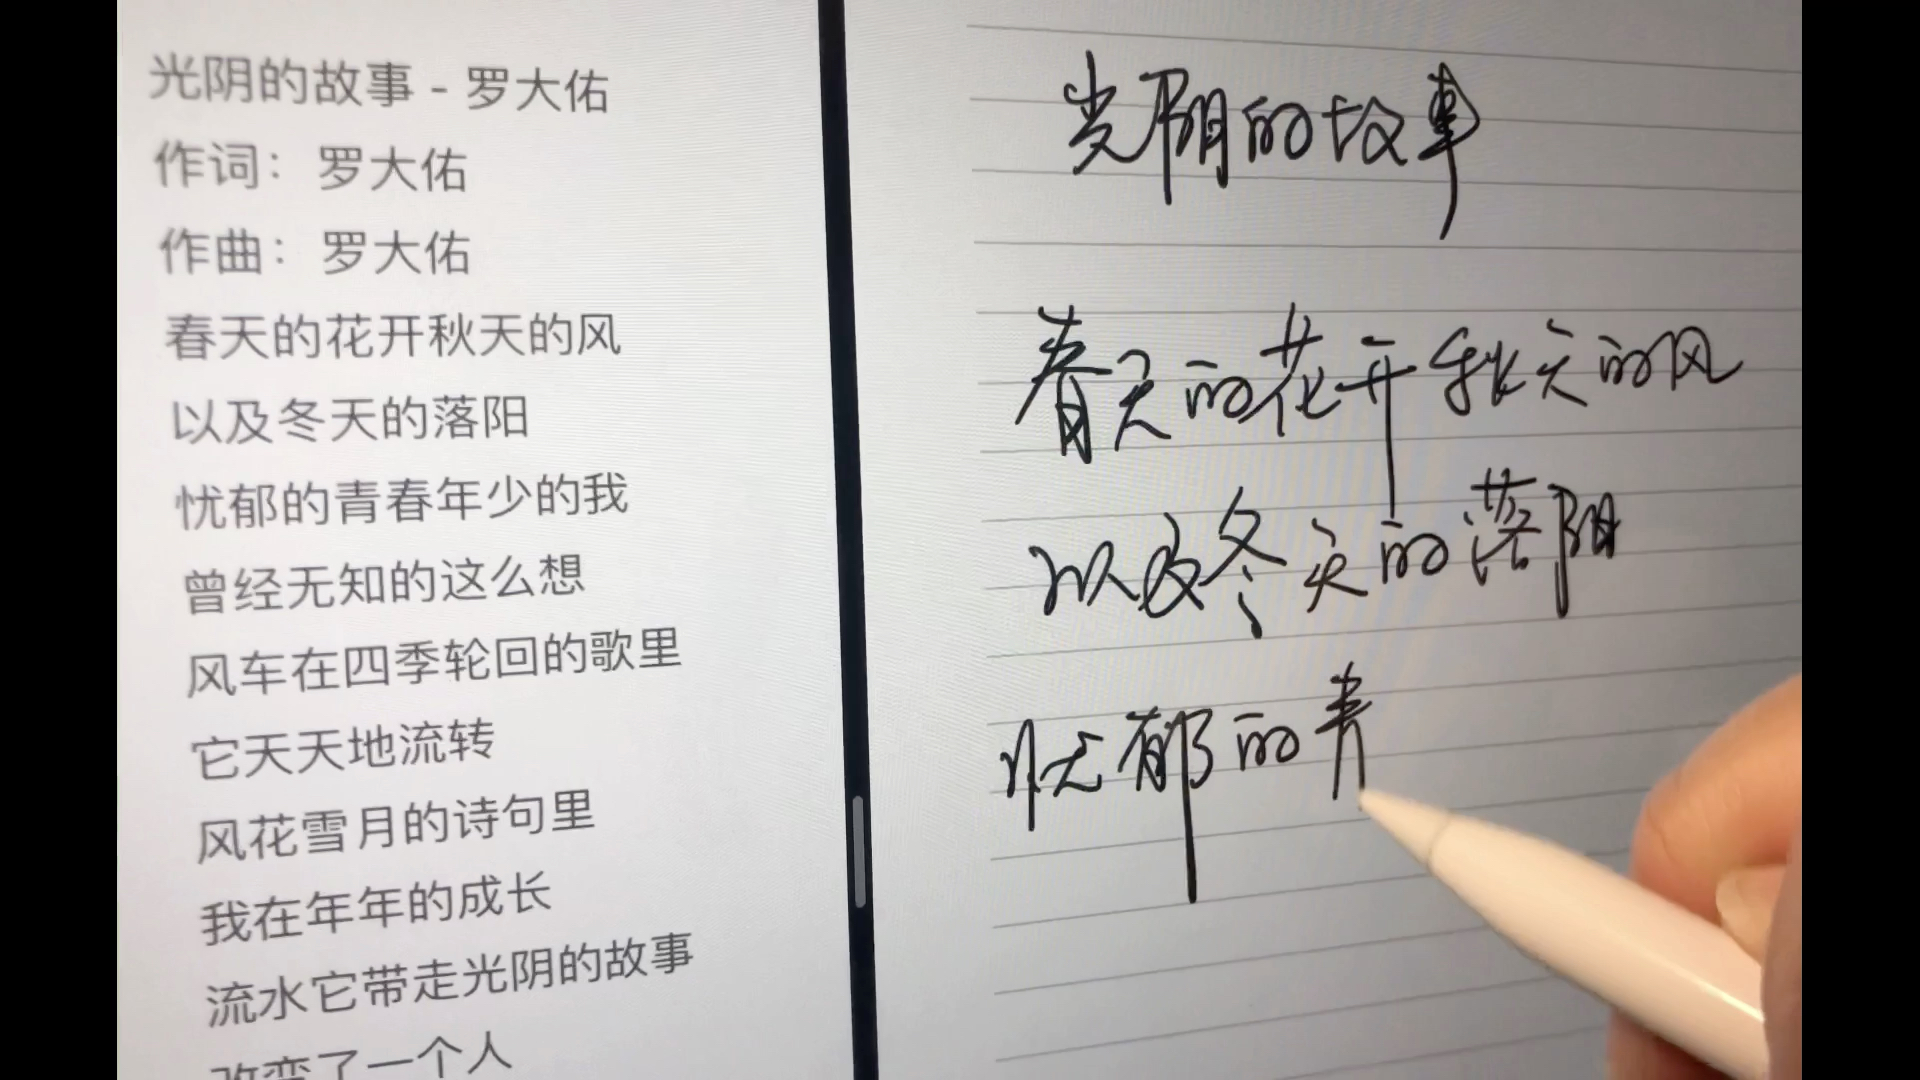 光阴的故事 - 罗大佑
作词：罗大佑
作曲：罗大佑
春天的花开秋天的风
以及冬天的落阳
忧郁的青春年少的我
曾经无知的这么想
风车在四季轮回的歌里
它天天地流转
风花雪月的诗句里
我在年年的成长
流水它带走光阴的故事
改变了一个人
光阴的故事
春天的花开秋天的风
以及冬天的落阳
忧郁的青